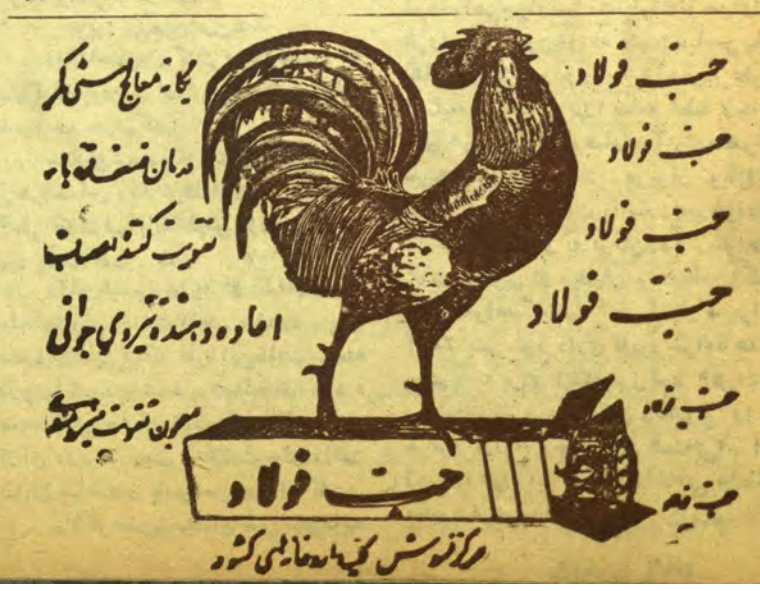 حب فولاد
حب فولاد
حب فولاد
حب فولاد
حب فولاد
حب فولاد
یگانه معالج سستی کمر
درمان ضعف قوه باه
تقویت کننده اعصاب
اعاده دهنده نیروی جوانی
معجون تقویت
حب فولاد
مرکز فروش کلیه داروخانه های کشور